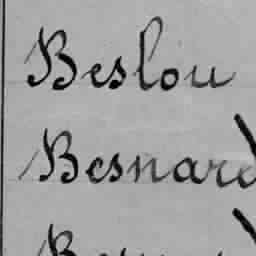 Beslou
Besnard